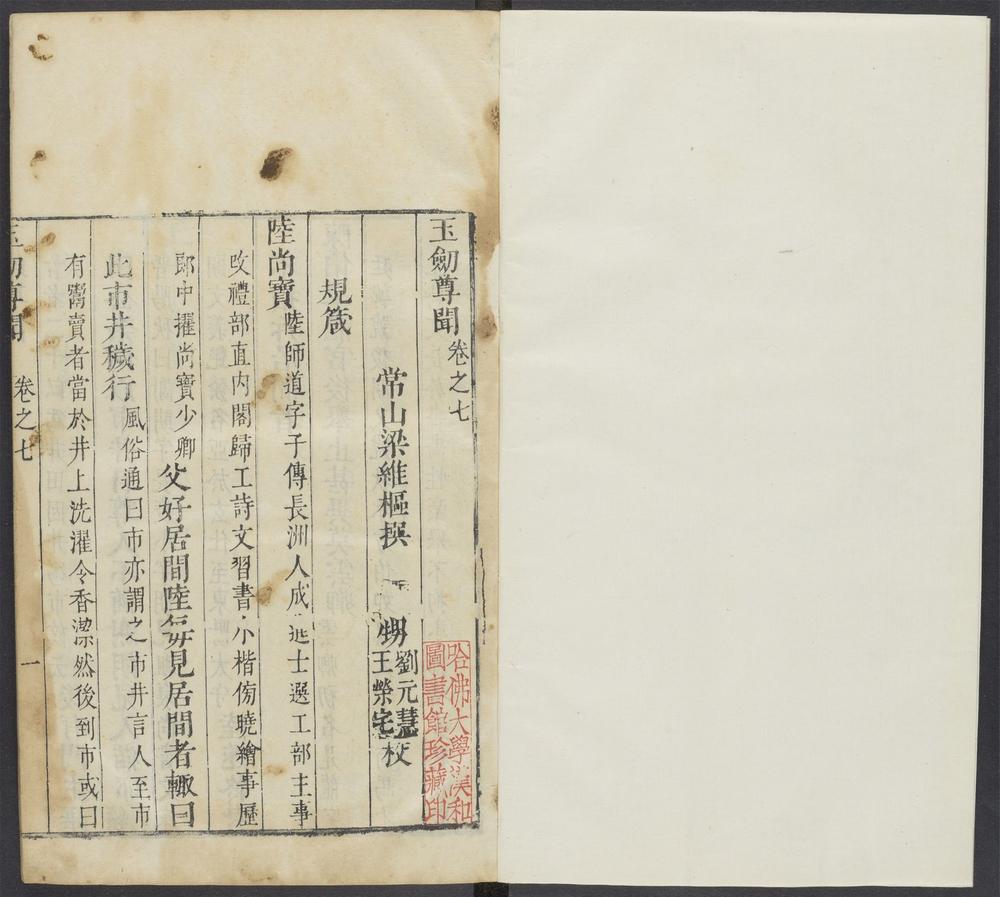 玉劒尊聞卷之七
常山梁維樞撰
甥劉元慧
王榮宅校
規箴
陸尚寶陸師道字子傳長洲人成進士選工部主事
改禮部直内閣歸工詩文習書小楷傍曉繪事歷
郎中擢尚寶少卿父好居間陸每見居間者輙曰
此市井穢行風俗通曰市亦謂之市井言人至市
有鬻賣者當於井上洗濯令香潔然後到市或曰
玉劒尊聞 卷之七 一
哈佛大學漢和
圖書館珍藏印